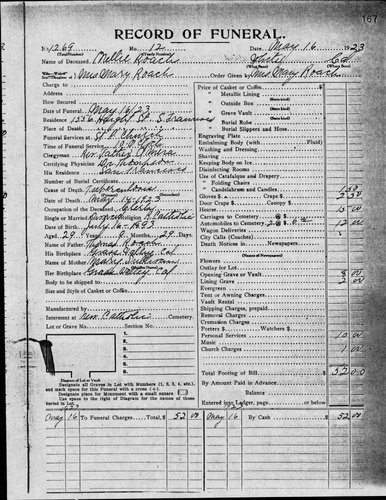 167
RECORD OF FUNERAL.
No. 1269 No. 12 Date May 16 1923
(Total Number) (Yearly Number)
Name of Deceased Nellie Roach
Mrs Mary Roach Order Given by Mrs Mary Roach
Charge to
Address
How Secured
Date of Funeral May 16/23
Residence St. S. Francisco
Place of Death
Funeral Services at Church
Time of Funeral Service
Clergyman Rev. Father
Certifying Physician Thompson
His Residence San Francisco
Number of Burial Certificate
Cause of Death Tuberculosis
Date of Death May 14 1923
Occupation of the Deceased
Single or Married Religion R. Catholic
Date of Birth July 16 1893
Aged 29 Years Months 29 Days
Name of Father Thomas Roach
His Birthplace Grass Valley Cal
Name of Mother Mary
Her Birthplace Grass Valley Cal
Body to be shipped to
Size and Style of Casket or Coffin
Manufactured by
Interment at New Catholic Cemetery.
Lot or Grave No. Section No.
Diagram of Lot or Vault
Designate all Graves in Lot with Numbers (1, 2, 3, 4, etc.),
and mark space for this Funeral with a cross (+).
Designate place for Monument with a small square
Use space to the right of Diagram for the names of those
buried in Lot.
Price of Casket or Coffin
" Metallic Lining
(State kind)
" Outside Box
(State kind)
" Grave Vault
(State kind)
" Burial Robe
(State kind)
" Burial Slippers and Hose
Engraving Plate
Embalming Body (with Fluid)
Washing and Dressing
Shaving
Keeping Body on Ice
Disinfecting Rooms
Use of Catafalque and Drapery
" Folding Chairs
" Candelabrum and Candles 1 50
Gloves $ Crape $ 2 50
Door Crape
Hearse 15 00
Carriages to Cemetery @ $
Automobiles to Cemetery 2 @ $ 6.00 12 00
Wagon Deliveries
City Calls (Coaches)
Death Notices in Newspapers
(Names of Newspapers)
Flowers
Outlay for Lot
Opening Grave or Vault 8 00
Lining Grave 2 00
Evergreen
Tent or Awning Charges
Vault Rental
Shipping Charges, prepaid
Removal Charges
Cremation Charges
Porters $ Watchers $
Personal Services 10 00
Music
Church Charges 1 00
Total Footing of Bill $ 52 00
By Amount Paid in Advance
Balance
Entered into Ledger, page or below.
1923
May 16 To Funeral Charges Total, $ 52 00
1923
May 16 By Cash $ 52 00